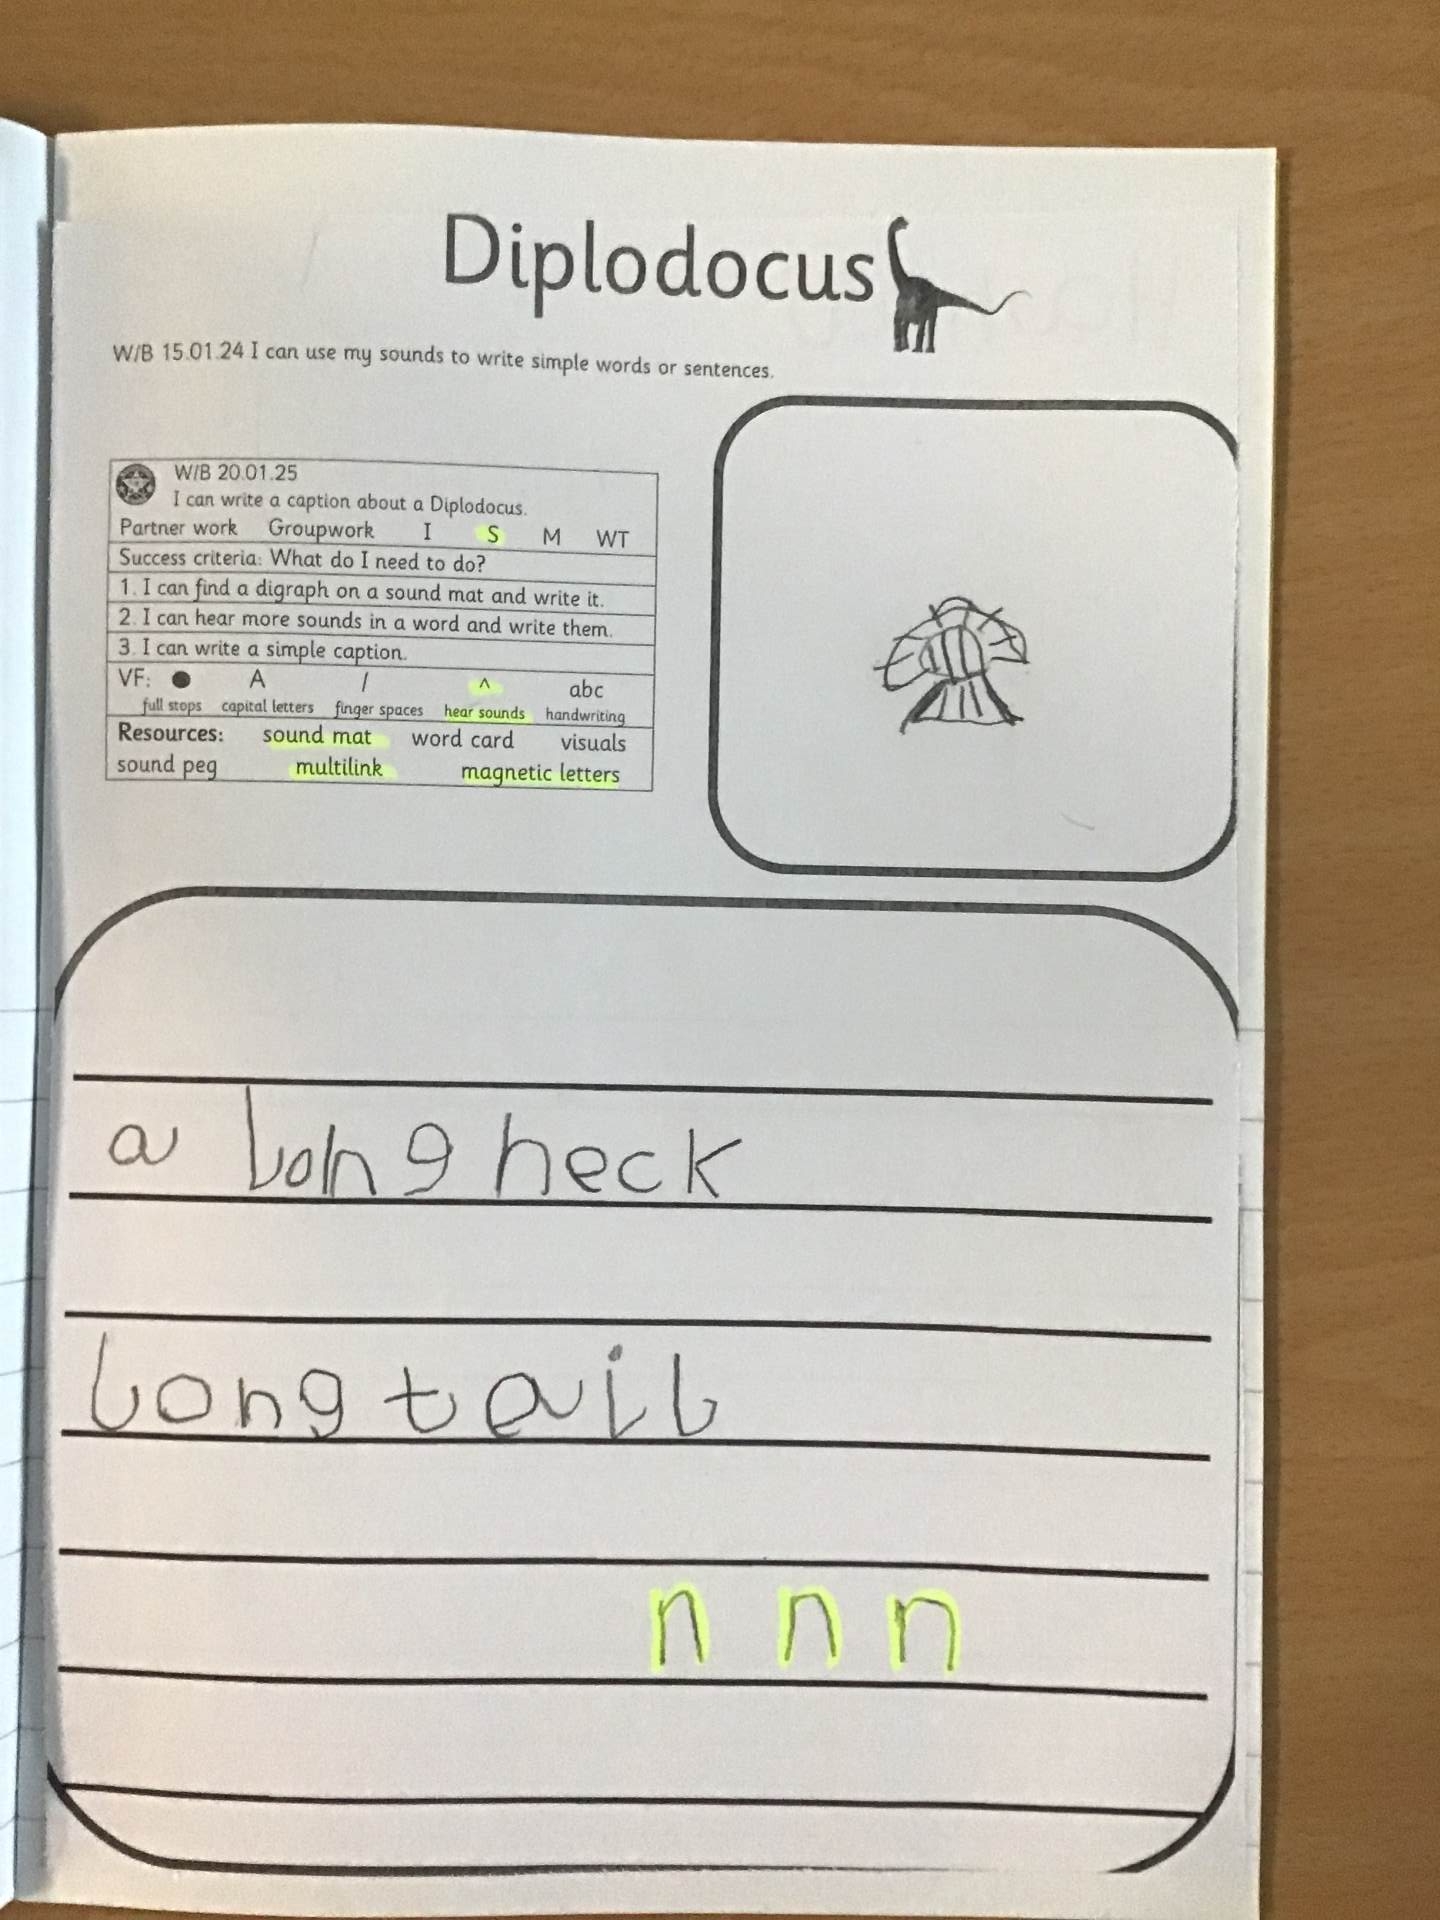 Diplodocus
W/B 15.01.24 I can use my sounds to write simple words or sentences.
W/B 20.01.25
I can write a caption about a Diplodocus.
Partner work Groupwork I S M WT
Success criteria: What do I need to do?
1. I can find a digraph on a sound mat and write it.
2. I can hear more sounds in a word and write them.
3. I can write a simple caption.
VF: ● A / ^ abc
full stops capital letters finger spaces hear sounds handwriting
Resources: sound mat word card visuals
sound peg multilink magnetic letters
a long neck
long tail
n n n